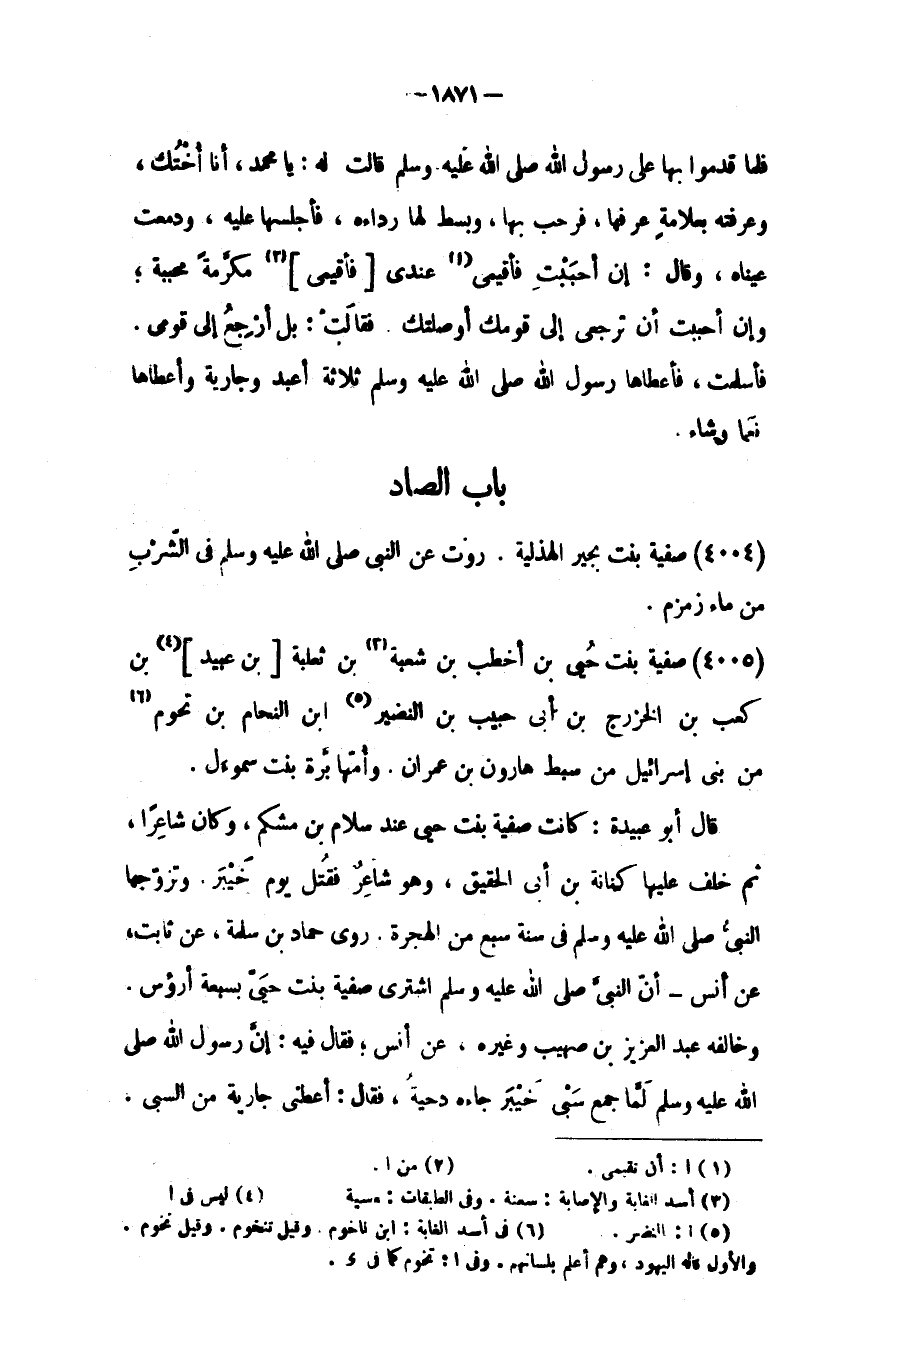 — ١٨٧١ —
فلما قدموا بها على رسول الله صلى الله عليه وسلم قالت له : يا محمد ، أنا أُخْتُك ،
وعرفته بعلامةٍ عرفها ، فرحب بها ، وبسط لها رداءه ، فأجلسها عليه ، ودمعت
عيناه ، وقال : إن أحبَبْتِ فأقيمى(١) عندى [ فأقيمى ](٢) مكرَّمةً محببة ؛
وإن أحببت أن ترجعى إلى قومك أوصلتك . فقالَتْ : بل أرْجِعُ إلى قومى .
فأسلمت ، فأعطاها رسول الله صلى الله عليه وسلم ثلاثة أعبد وجارية وأعطاها
نَعَما وشاء .
باب الصاد
(٤٠٠٤) صفية بنت بجير الهذلية . روَت عن النبى صلى الله عليه وسلم فى الشّرْبِ
من ماء زمزم .
(٤٠٠٥) صفية بنت حُيى بن أخطب بن شعبة(٣) بن ثعلبة [ بن عبيد ](٤) بن
كعب بن الخزرج بن أبى حبيب بن النضير(٥) ابن النحام بن تحوم(٦)
من بنى إسرائيل من سبط هارون بن عمران . وأُمّها بَّرة بنت سموءل .
قال أبو عبيدة : كانت صفية بنت حيى عند سلام بن مشكم ، وكان شاعِرًا ،
ثم خلف عليها كنانة بن أبى الحقيق ، وهو شاعِرٌ فقُتل يوم خَيْبَر . وتزوّجها
النبىُّ صلى الله عليه وسلم فى سنة سبع من الهجرة . روى حماد بن سلمة ، عن ثابت،
عن أنس – أنّ النبىَّ صلى الله عليه وسلم اشترى صفية بنت حيَىّ بسبعة أرؤس .
وخالفه عبد العزيز بن صهيب وغيره ، عن أنس ؛ فقال فيه : إنَّ رسول الله صلى
الله عليه وسلم لَمَّا جمع سَبْى خَيْبَرَ جاءه دحيةُ ، فقال : أعطنى جارية من السبى .
(١) ا : أن تقيمى . (٢) من ا .
(٣) أسد الغابة والإصابة : سعنة . وفى الطبقات : سية (٤) ليس فى ا
(٥) ا : النضر . (٦) فى أسد الغابة : ابن ناخوم . وقيل تنخوم . وقيل نخوم .
والأول قاله اليهود ، وهم أعلم بلسانهم . وفى ا : تخوم كما فى ء .